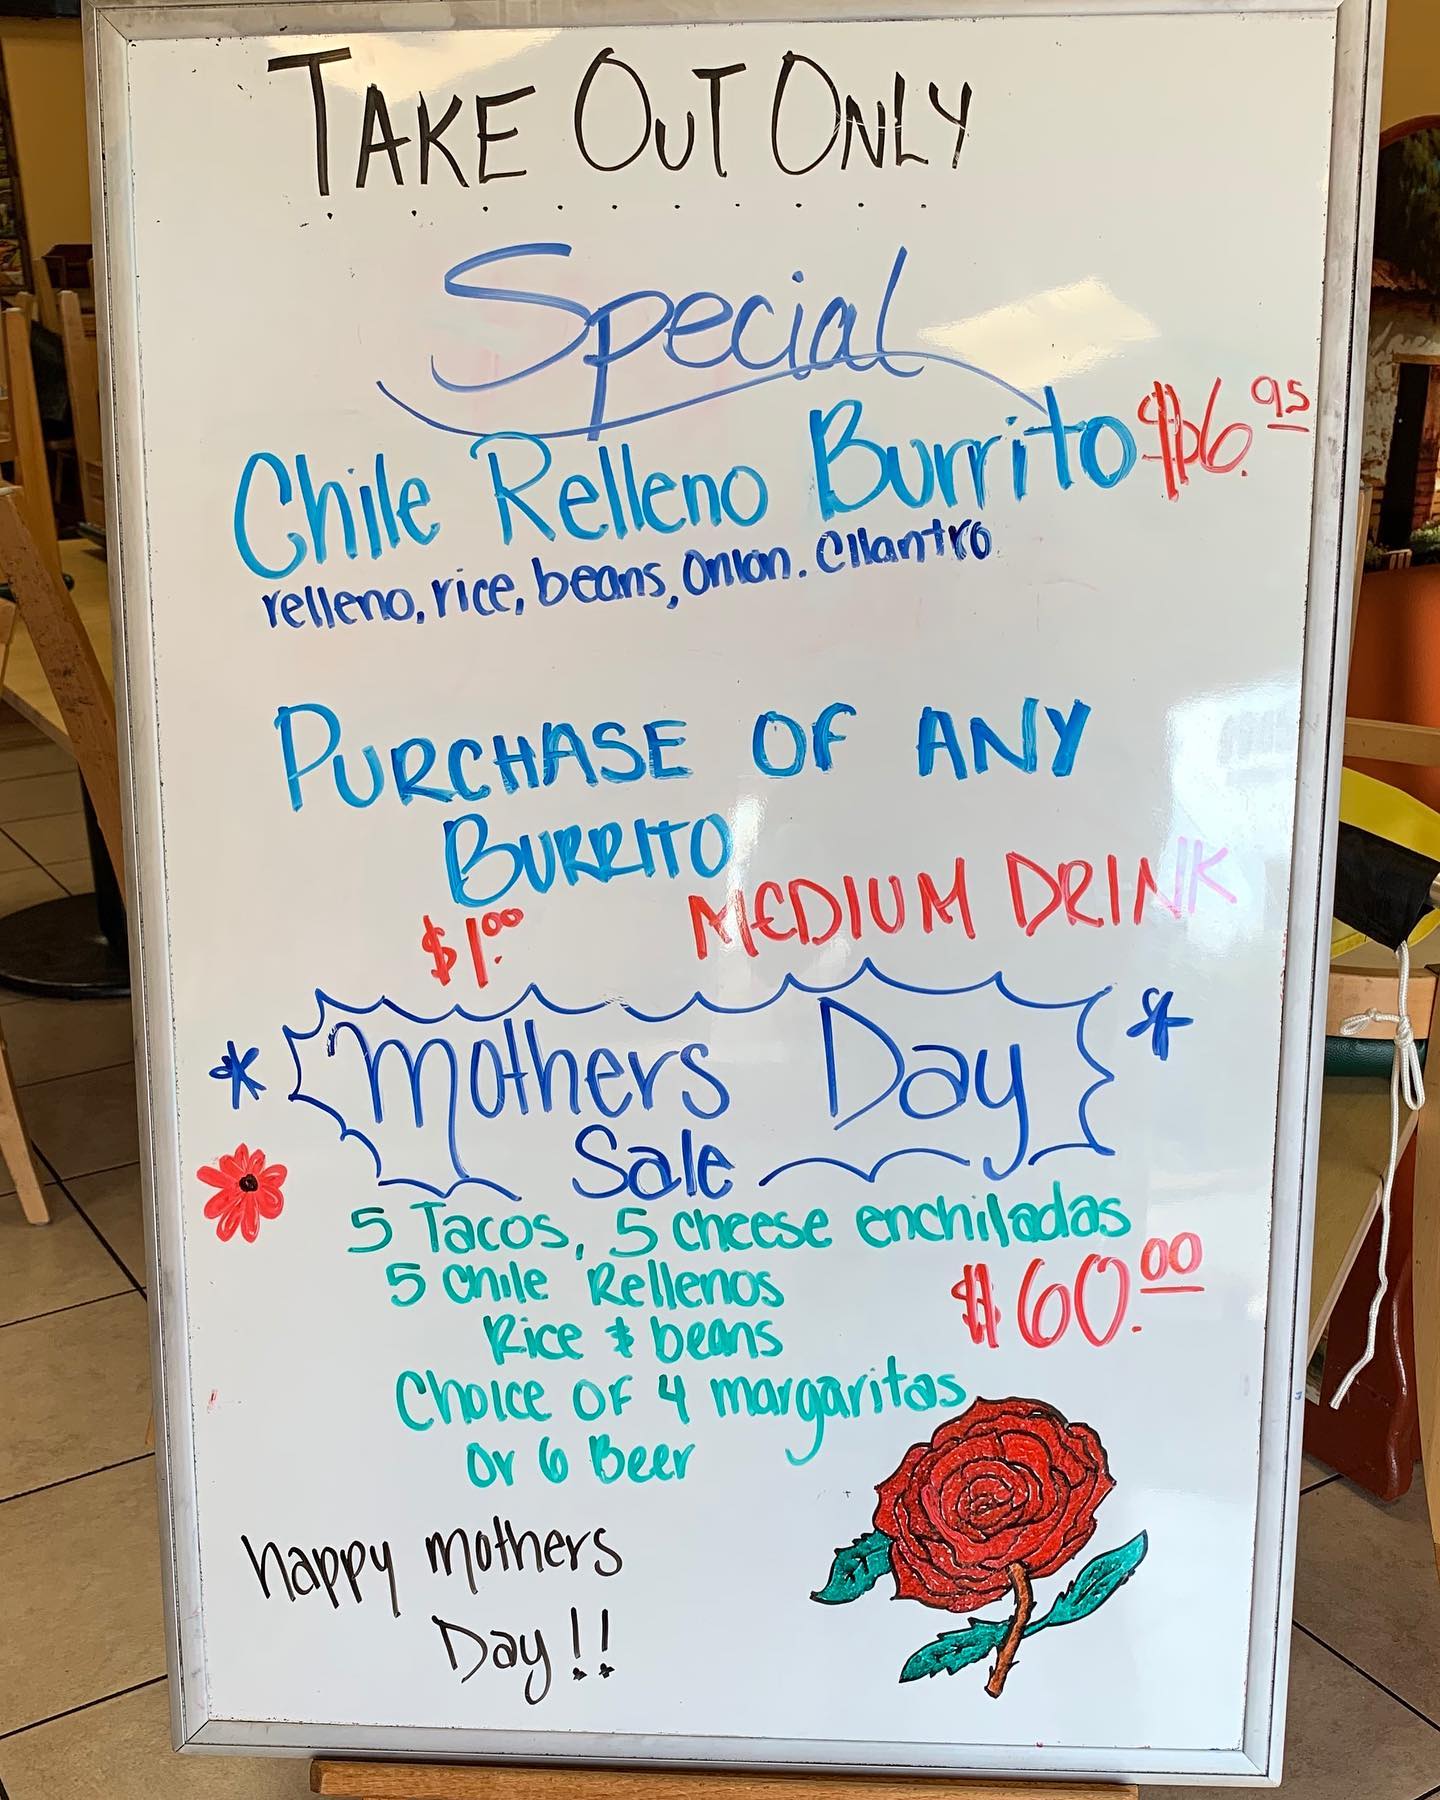 TAKE OUT ONLY
Special
Chile Relleno Burrito $6.95
relleno, rice, beans, Onion. Cilantro
PURCHASE OF ANY
BURRITO
$1.00 MEDIUM DRINK
Mothers Day
Sale
5 Tacos, 5 cheese enchiladas
5 Chile Rellenos
Rice & beans
$60.00
Choice OF 4 margaritas
Or 6 Beer
happy mothers
Day!!